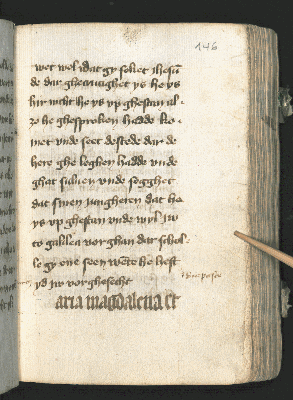 146
wet wol idat gy soket ihesū
de dar ghecruciget ys he ys
hir nicht he ys vp ghestan al
ze he ghesproken hadde ko
met vnde seet de stede dar de
here ghe leghen hadde vnde
ghat suluen vnde segghet
dat sinen iungheren dat he
ys vp ghestan vnde wyl iw
to galilea vor ghan dar schol
le gy ene seen wēte he heft
yd iw vor ghesecht
aria magdalena et